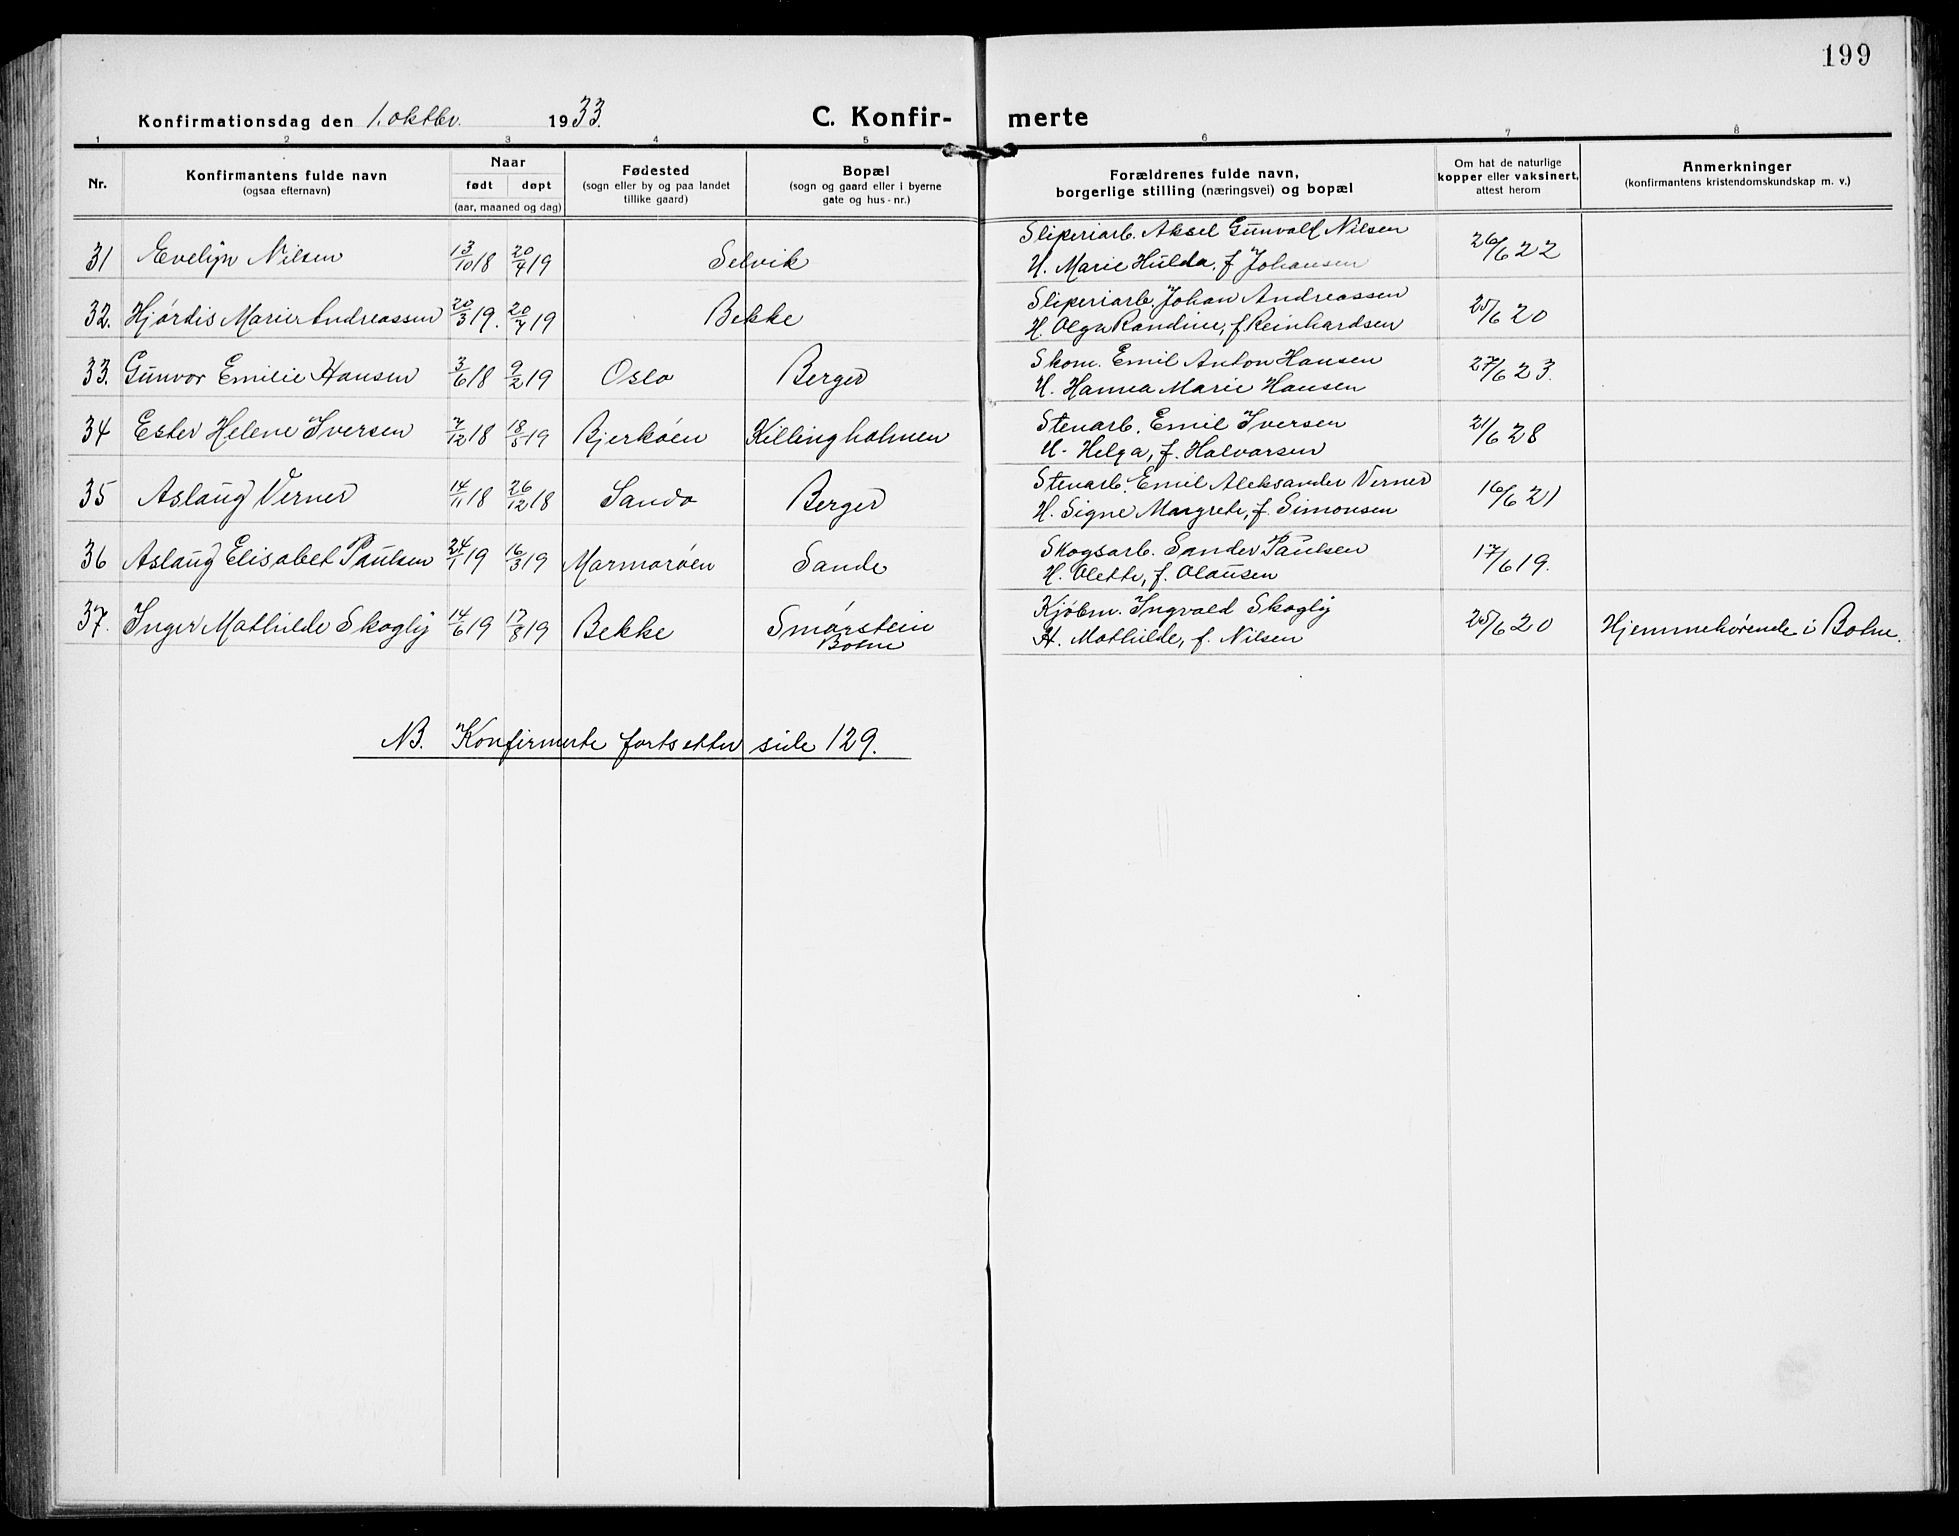 199
Konfirmationsdag den 1. oktbr. 1933.
C. Konfir- merte
1 2 3 4 5 6 7 8
Nr.
Konfirmantens fulde navn
(ogsaa efternavn)
Naar
født døpt
(aar, maaned og dag)
Fødested
(sogn eller by og paa landet
tillike gaard)
Bopæl
(sogn og gaard eller i byerne
gate og hus-nr.)
Forældrenes fulde navn,
borgerlige stilling (næringsvei) og bopæl
Om hat de naturlige
kopper eller vaksinert,
attest herom
Anmerkninger
(konfirmantens kristendomskundskap m. v.)
Sliperiarb. Aksel Gunvald Nilsen
31 Evelyn Nilsen 13/10 18 20/4 19 Selvik 26/6 22
H. Marie Hulda, f Johansen
Sliperiarb. Johan Andreassen
32. Hjørdis Marie Andreassen 20/3 19. 20/7 19 Bekke 25/6 20
H. Olga Randine, f Reinhardsen
Skom. Emil Anton Hansen
33. Gunvor Emilie Hansen 3/6 18 9/2 19 Oslo Berger 27/6 23.
H. Hanna Marie Hansen
Stenarb. Emil Iversen
34 Ester Helene Iversen 7/12 18 18/5 19 Bjerkøen Killingholmen 21/6 28
H. Helga, f. Halvorsen
Stenarb. Emil Aleksander Verner
35 Aslaug Verner 14/11 18 26/12 18 Sande Berger 16/6 21
H. Signe Margrete, f. Simonsen
Skogsarb. Sander Paulsen
36 Aslaug Elisabet Paulsen 24/1 19 16/3 19 Marmorøen Sande 17/6 19.
H. Olette, f. Olausen
Kjøbm. Ingvald Skogly
37. Inger Mathilde Skogly 14/6 19 17/8 19 Bekke Smørstein 25/6 20 Hjemmehørende i Botne.
Botne
H. Mathilde, f. Nilsen
NB. Konfirmerte fortsetter side 129.